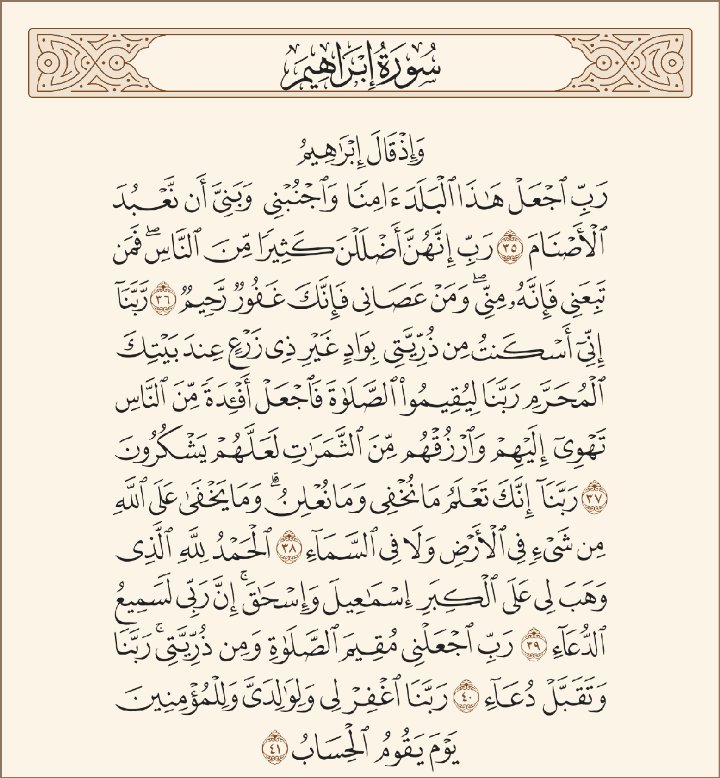 سُورَةُ إِبْرَاهِيمَ
وَإِذْ قَالَ إِبْرَٰهِيمُ
رَبِّ ٱجْعَلْ هَٰذَا ٱلْبَلَدَ ءَامِنًا وَٱجْنُبْنِى وَبَنِىَّ أَن نَّعْبُدَ
ٱلْأَصْنَامَ ٣٥ رَبِّ إِنَّهُنَّ أَضْلَلْنَ كَثِيرًا مِّنَ ٱلنَّاسِ ۖ فَمَن
تَبِعَنِى فَإِنَّهُۥ مِنِّى ۖ وَمَنْ عَصَانِى فَإِنَّكَ غَفُورٌ رَّحِيمٌ ٣٦ رَّبَّنَآ
إِنِّىٓ أَسْكَنتُ مِن ذُرِّيَّتِى بِوَادٍ غَيْرِ ذِى زَرْعٍ عِندَ بَيْتِكَ
ٱلْمُحَرَّمِ رَبَّنَا لِيُقِيمُوا۟ ٱلصَّلَوٰةَ فَٱجْعَلْ أَفْـِٔدَةً مِّنَ ٱلنَّاسِ
تَهْوِىٓ إِلَيْهِمْ وَٱرْزُقْهُم مِّنَ ٱلثَّمَرَٰتِ لَعَلَّهُمْ يَشْكُرُونَ
٣٧ رَبَّنَآ إِنَّكَ تَعْلَمُ مَا نُخْفِى وَمَا نُعْلِنُ ۗ وَمَا يَخْفَىٰ عَلَى ٱللَّهِ
مِن شَىْءٍ فِى ٱلْأَرْضِ وَلَا فِى ٱلسَّمَآءِ ٣٨ ٱلْحَمْدُ لِلَّهِ ٱلَّذِى
وَهَبَ لِى عَلَى ٱلْكِبَرِ إِسْمَٰعِيلَ وَإِسْحَٰقَ ۚ إِنَّ رَبِّى لَسَمِيعُ
ٱلدُّعَآءِ ٣٩ رَبِّ ٱجْعَلْنِى مُقِيمَ ٱلصَّلَوٰةِ وَمِن ذُرِّيَّتِى ۚ رَبَّنَا
وَتَقَبَّلْ دُعَآءِ ٤٠ رَبَّنَا ٱغْفِرْ لِى وَلِوَٰلِدَىَّ وَلِلْمُؤْمِنِينَ
يَوْمَ يَقُومُ ٱلْحِسَابُ ٤١